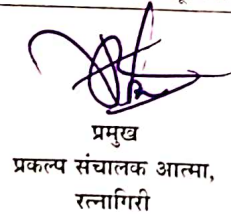 प्रमुख
प्रकल्प संचालक आत्मा,
रत्नागिरी